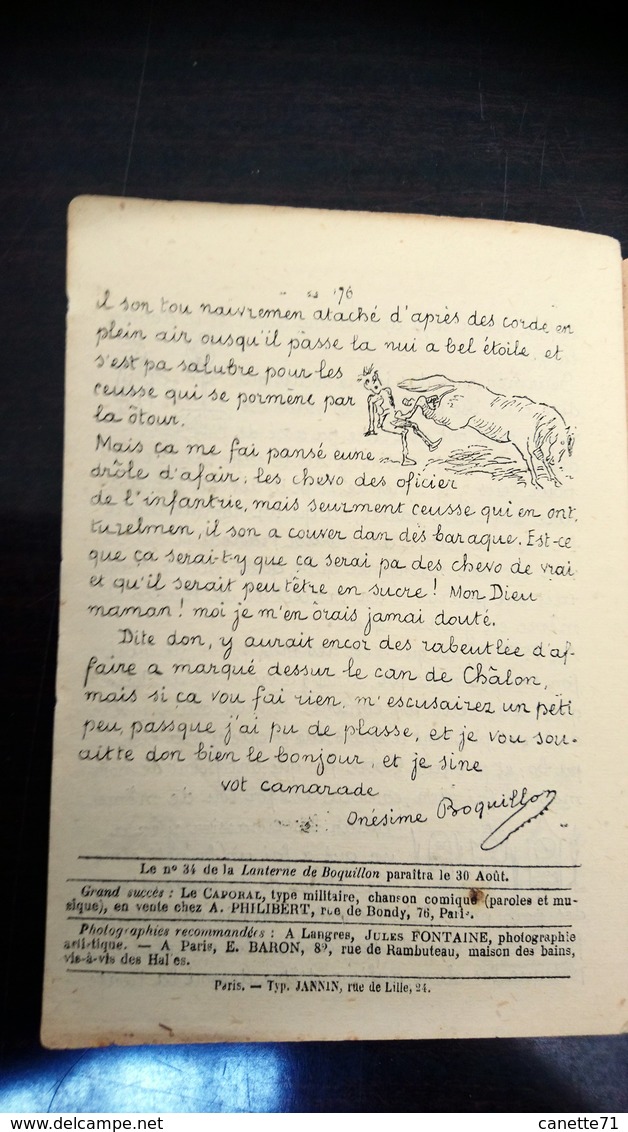 il son tou naivremen ataché d'après des corde en
plein air ousqu'il passe la nui a bel étoile, et
s'est pa salubre pour les
ceusse qui se pormène par
la ôtour.
Mais ça me fai pansé eune
drôle d'afair, les chevo des oficier
de l'infantrie, mais seurment ceusse qui en ont,
turelmen, il son a couver dan dès baraque. Est-ce
que ça serai-t-y que ça serai pa des chevo de vrai
et qu'il serait peu têtre en sucre! Mon Dieu
maman! moi je m'en ôrais jamai douté.
Dite don, y aurait encor des rabeutlée d'af-
faire a marqué dessur le can de Châlon,
mais si ça vou fai rien, m'escusairez un peti
peu, passque j'ai pu de plasse, et je vou sou-
aitte don bien le bonjour, et je sine
vot camarade
Onésime Boquillon
Le nº 34 de la Lanterne de Boquillon paraîtra le 30 Août.
Grand succès : Le CAPORAL, type militaire, chanson comique (paroles et mu-
sique), en vente chez A. PHILIBERT, rue de Bondy, 76, Paris.
Photographies recommandées : A Langres, JULES FONTAINE, photographie
artistique. — A Paris, E. BARON, rue de Rambuteau, maison des bains,
vis-à-vis des Halles.
Paris. — Typ. JANNIN, rue de Lille, 24.
canette71